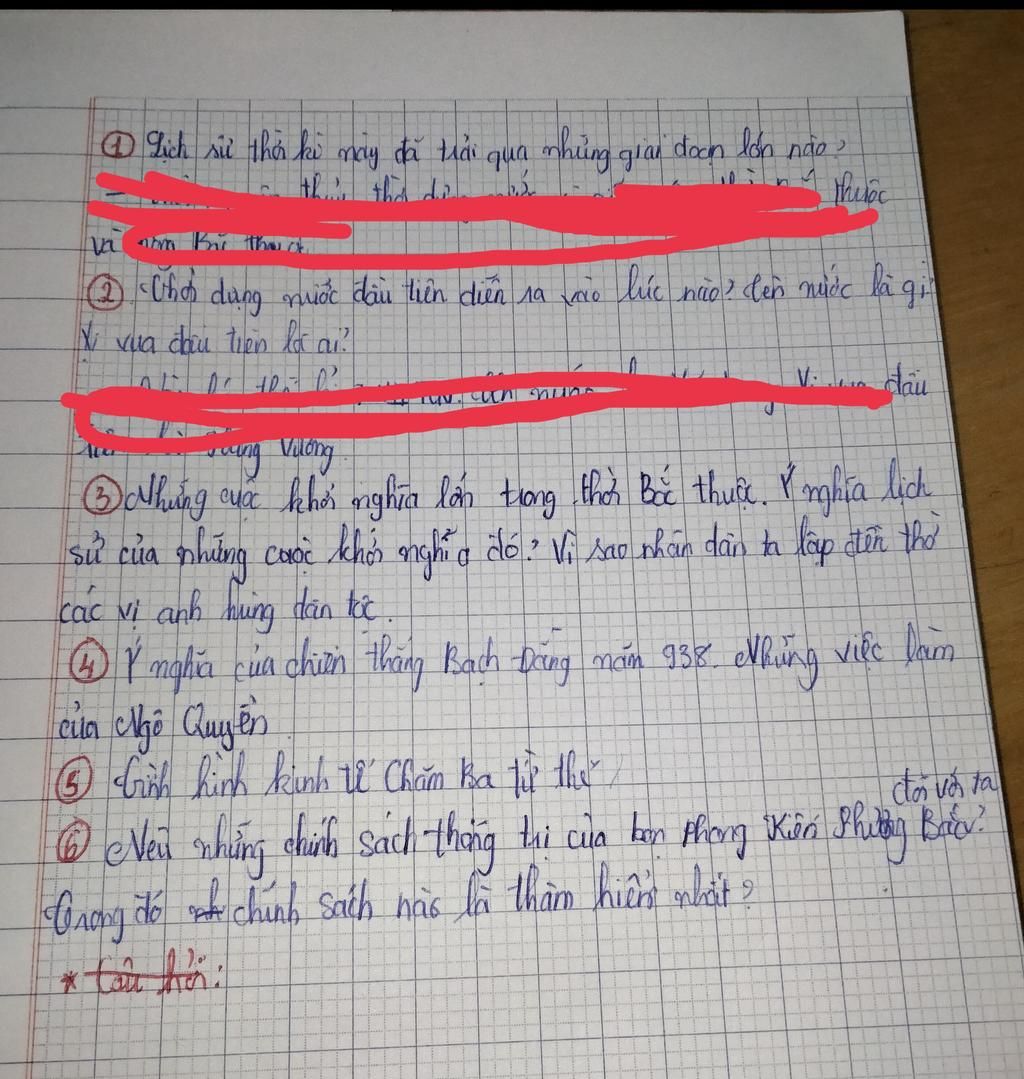 ① Lịch sử thời kì này đã trải qua những giai đoạn lớn nào?
thuộc
và
② Thời dựng nước đầu tiên diễn ra vào lúc nào? tên nước là gì
Vị vua đầu tiên là ai?
đầu
Vương
③ Những cuộc khởi nghĩa lớn trong thời Bắc thuộc. Ý nghĩa lịch
sử của những cuộc khởi nghĩa đó? Vì sao nhân dân ta lập đền thờ
các vị anh hùng dân tộc.
④ Ý nghĩa của chiến thắng Bạch Đằng năm 938. Những việc làm
của Ngô Quyền
⑤ Tình hình kinh tế Chăm Pa từ thế
đối với ta
⑥ Nêu những chính sách thống trị của bọn phong kiến Phương Bắc?
Trong đó chính sách nào là thâm hiểm nhất?
* Câu hỏi: